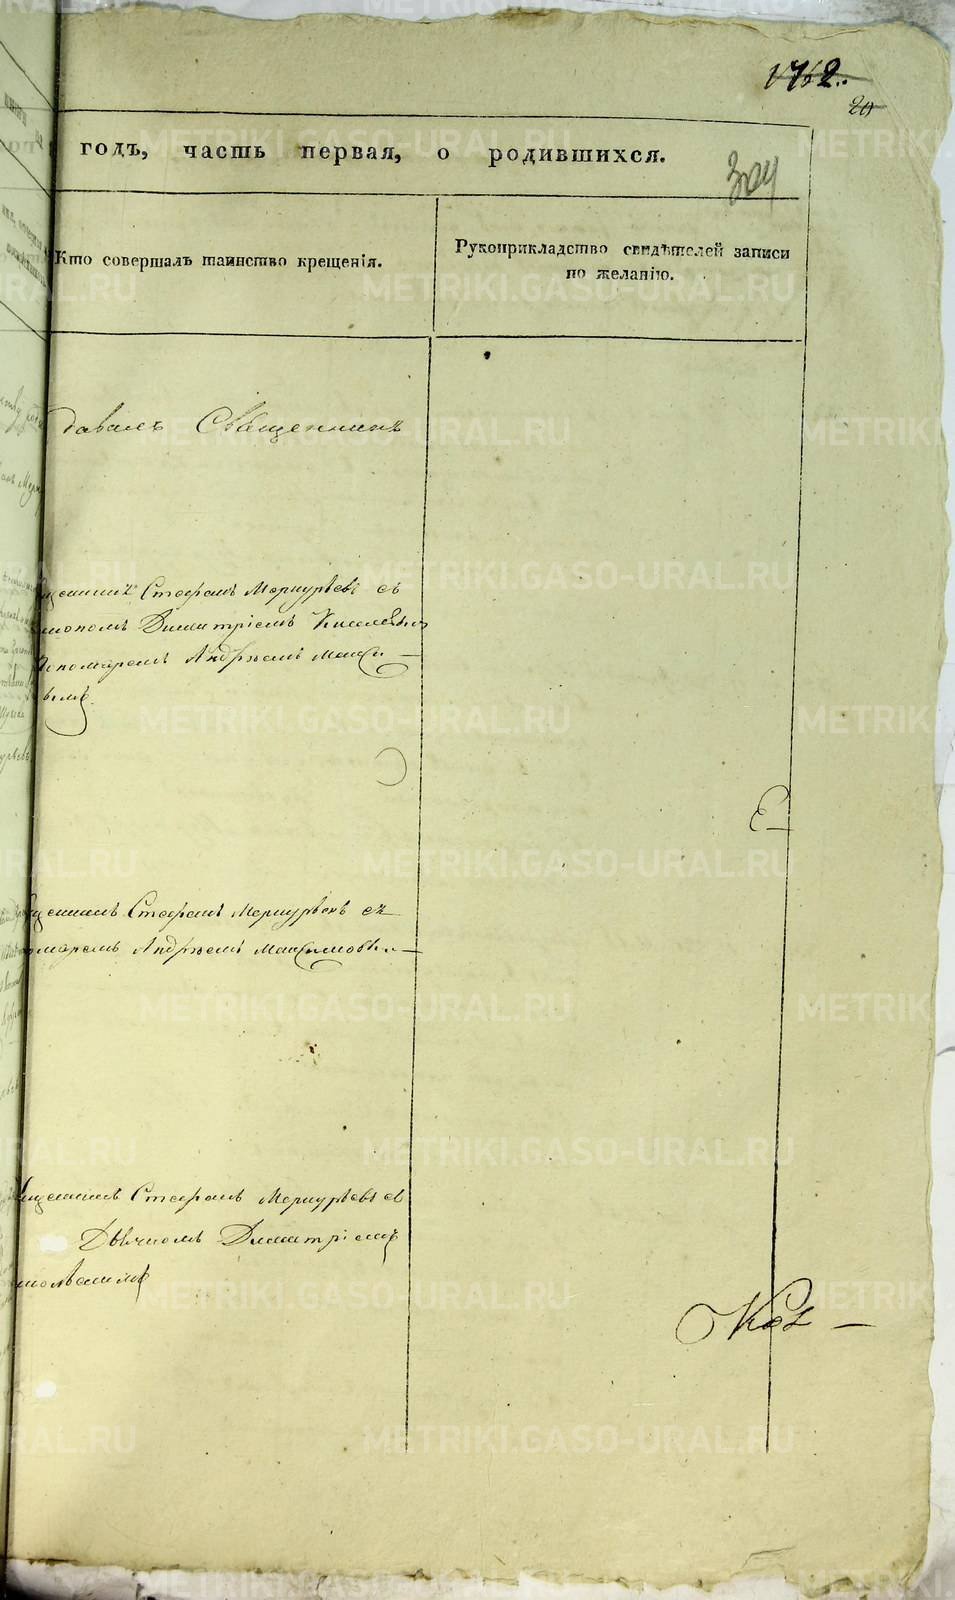 1762.
20
годъ, часть первая, о родившихся.
304
Кто совершалъ таинство крещенія.
Рукоприкладство свидѣтелей записи
по желанію.
давалъ Священникъ
щенникъ Стефанъ Меркурьевъ съ
Димитріемъ
пономаремъ Андреемъ Макси—
вымъ
щенникъ Стефанъ Меркурьевъ съ
номаремъ Андреемъ Максимовы—
щенникъ Стефанъ Меркурьевъ съ
Дьячкомъ Димитріемъ
METRIKI.GASO-URAL.RU